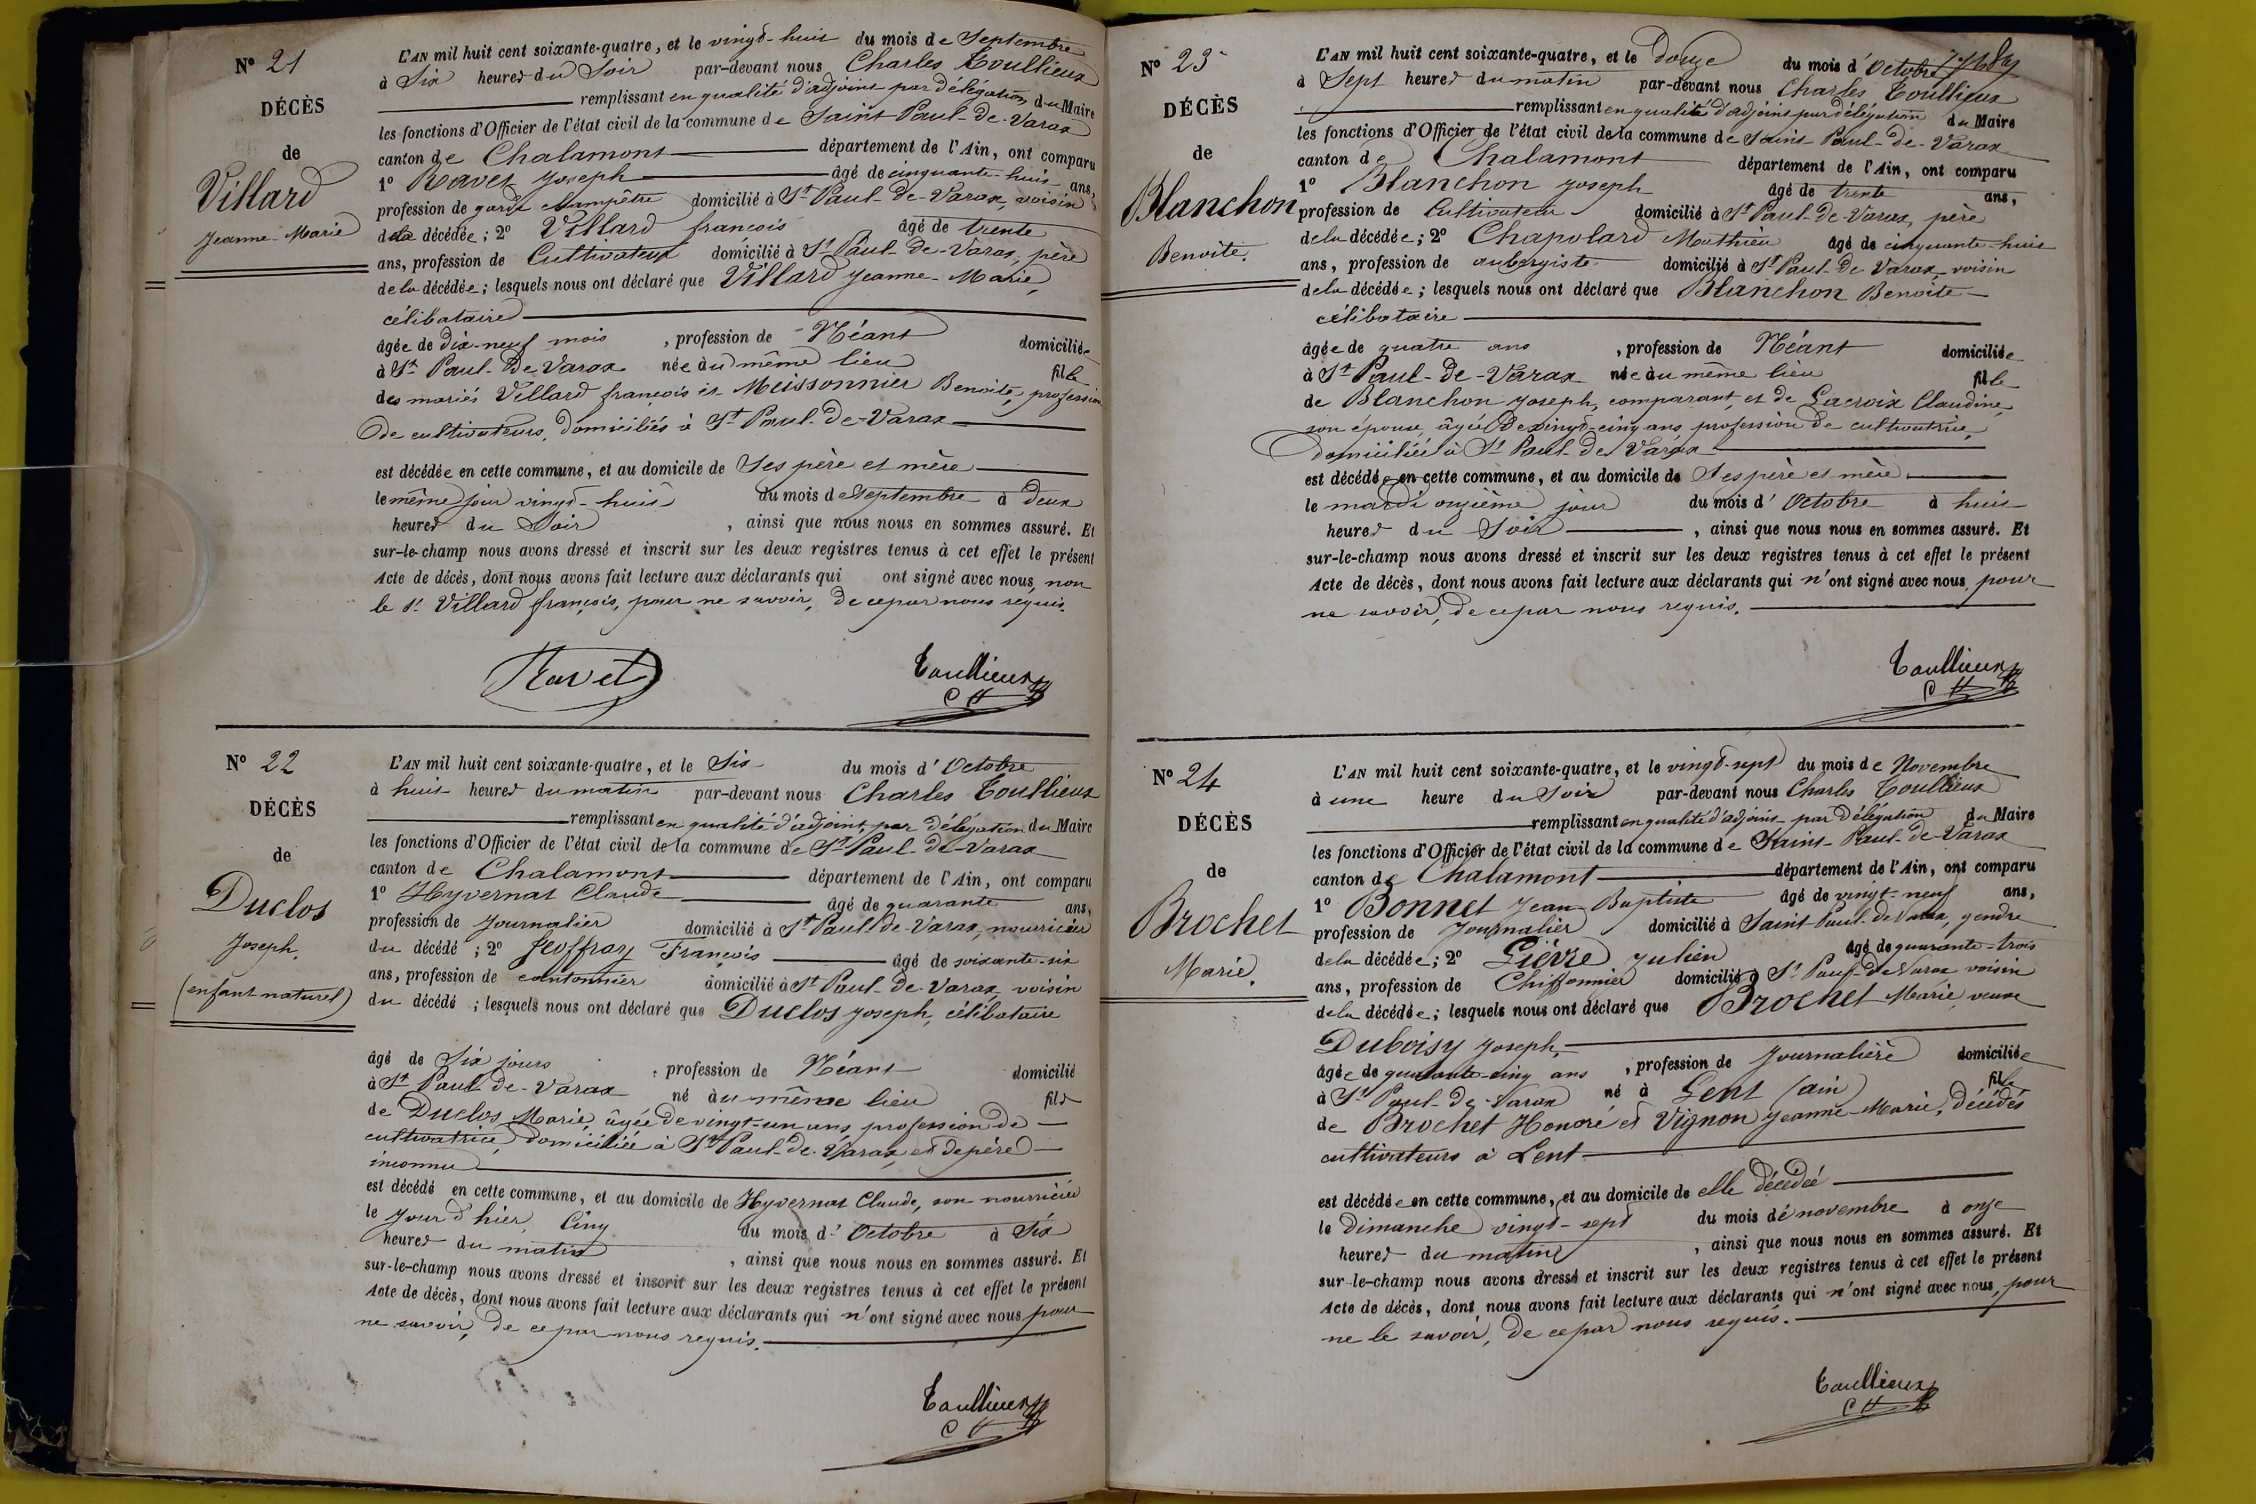 N° 21
DÉCÈS
de
Villard
Jeanne-Marie
L'AN mil huit cent soixante-quatre, et le vingt-huit du mois de Septembre
à Six heures du Soir par-devant nous Charles Toullieux
remplissant en qualité d'adjoint par délégation du Maire
les fonctions d'Officier de l'état civil de la commune de Saint Paul-de-Varax
canton de Chalamont département de l'Ain, ont comparu
1° Ravet Joseph âgé de cinquante-huit ans,
profession de garde champêtre domicilié à St Paul-de-Varax, voisin
de la décédée; 2° Villard françois âgé de trente
ans, profession de Cultivateur domicilié à St Paul-de-Varax, père
de la décédée; lesquels nous ont déclaré que Villard Jeanne-Marie,
célibataire
âgée de dix-neuf mois, profession de Néant domiciliée
à St Paul-de-Varax née au même lieu fille
des mariés Villard françois et Meissonnier Benoite, profession
de cultivateurs, domiciliés à St Paul-de-Varax
est décédée en cette commune, et au domicile de Ses père et mère
le même jour vingt-huit du mois de Septembre à deux
heures du Soir, ainsi que nous nous en sommes assuré. Et
sur-le-champ nous avons dressé et inscrit sur les deux registres tenus à cet effet le présent
Acte de décès, dont nous avons fait lecture aux déclarants qui ont signé avec nous, non
le sr Villard françois, pour ne savoir, de ce par nous requis.
Ravet
Toullieux
N° 22
DÉCÈS
de
Duclos
Joseph.
(enfant naturel)
L'AN mil huit cent soixante-quatre, et le Six du mois d'Octobre
à huit heures du matin par-devant nous Charles Toullieux
remplissant en qualité d'adjoint par délégation du Maire
les fonctions d'Officier de l'état civil de la commune de St Paul-de-Varax
canton de Chalamont département de l'Ain, ont comparu
1° Hyvernat Claude âgé de quarante ans,
profession de Journalier domicilié à St Paul-de-Varax, nourricier
du décédé; 2° Jeoffray François âgé de soixante-six
ans, profession de cantonnier domicilié à St Paul-de-Varax, voisin
du décédé; lesquels nous ont déclaré que Duclos Joseph, célibataire
âgé de Six jours, profession de Néant domicilié
à St Paul-de-Varax né au même lieu fils
de Duclos Marie, âgée de vingt-un ans, profession de
cultivatrice, domiciliée à St Paul-de-Varax, et de père
inconnu
est décédé en cette commune, et au domicile de Hyvernat Claude, son nourricier
le jour d'hier, Cinq du mois d'Octobre à Six
heures du matin, ainsi que nous nous en sommes assuré. Et
sur-le-champ nous avons dressé et inscrit sur les deux registres tenus à cet effet le présent
Acte de décès, dont nous avons fait lecture aux déclarants qui n'ont signé avec nous, pour
ne savoir, de ce par nous requis.
Toullieux
N° 23
DÉCÈS
de
Blanchon
Benoite.
L'AN mil huit cent soixante-quatre, et le douze du mois d'Octobre
à Sept heures du matin par-devant nous Charles Toullieux
remplissant en qualité d'adjoint par délégation du Maire
les fonctions d'Officier de l'état civil de la commune de Saint Paul-de-Varax
canton de Chalamont département de l'Ain, ont comparu
1° Blanchon Joseph âgé de trente ans,
profession de Cultivateur domicilié à St Paul-de-Varax, père
de la décédée; 2° Chapolard Mathieu âgé de cinquante-huit
ans, profession de aubergiste domicilié à St Paul-de-Varax, voisin
de la décédée; lesquels nous ont déclaré que Blanchon Benoite
célibataire
âgée de quatre ans, profession de Néant domiciliée
à St Paul-de-Varax née au même lieu fille
de Blanchon Joseph, comparant, et de Lacroix Claudine,
son épouse, âgée de vingt-cinq ans profession de cultivatrice,
domiciliée à St Paul-de-Varax
est décédée en cette commune, et au domicile de Ses père et mère
le mardi onzième jour du mois d'Octobre à huit
heures du Soir, ainsi que nous nous en sommes assuré. Et
sur-le-champ nous avons dressé et inscrit sur les deux registres tenus à cet effet le présent
Acte de décès, dont nous avons fait lecture aux déclarants qui n'ont signé avec nous, pour
ne savoir, de ce par nous requis.
Toullieux
N° 24
DÉCÈS
de
Brochet
Marie.
L'AN mil huit cent soixante-quatre, et le vingt-sept du mois de Novembre
à une heure du Soir par-devant nous Charles Toullieux
remplissant en qualité d'adjoint par délégation du Maire
les fonctions d'Officier de l'état civil de la commune de Saint-Paul-de-Varax
canton de Chalamont département de l'Ain, ont comparu
1° Bonnet Jean-Baptiste âgé de vingt-neuf ans,
profession de Journalier domicilié à Saint Paul-de-Varax, gendre
de la décédée; 2° Lièvre Julien âgé de quarante-trois
ans, profession de Chiffonnier domicilié à St Paul-de-Varax voisin
de la décédée; lesquels nous ont déclaré que Brochet Marie, veuve
Duboisy Joseph,
âgée de ans, profession de Journalière domiciliée
à St Paul-de-Varax né à Lent (ain) fille
de Brochet Honoré et Vignon Jeanne-Marie, décédés
cultivateurs à Lent
est décédée en cette commune, et au domicile de elle décédée
le Dimanche vingt-sept du mois de novembre à onze
heures du matin, ainsi que nous nous en sommes assuré. Et
sur-le-champ nous avons dressé et inscrit sur les deux registres tenus à cet effet le présent
Acte de décès, dont nous avons fait lecture aux déclarants qui n'ont signé avec nous, pour
ne le savoir, de ce par nous requis.
Toullieux